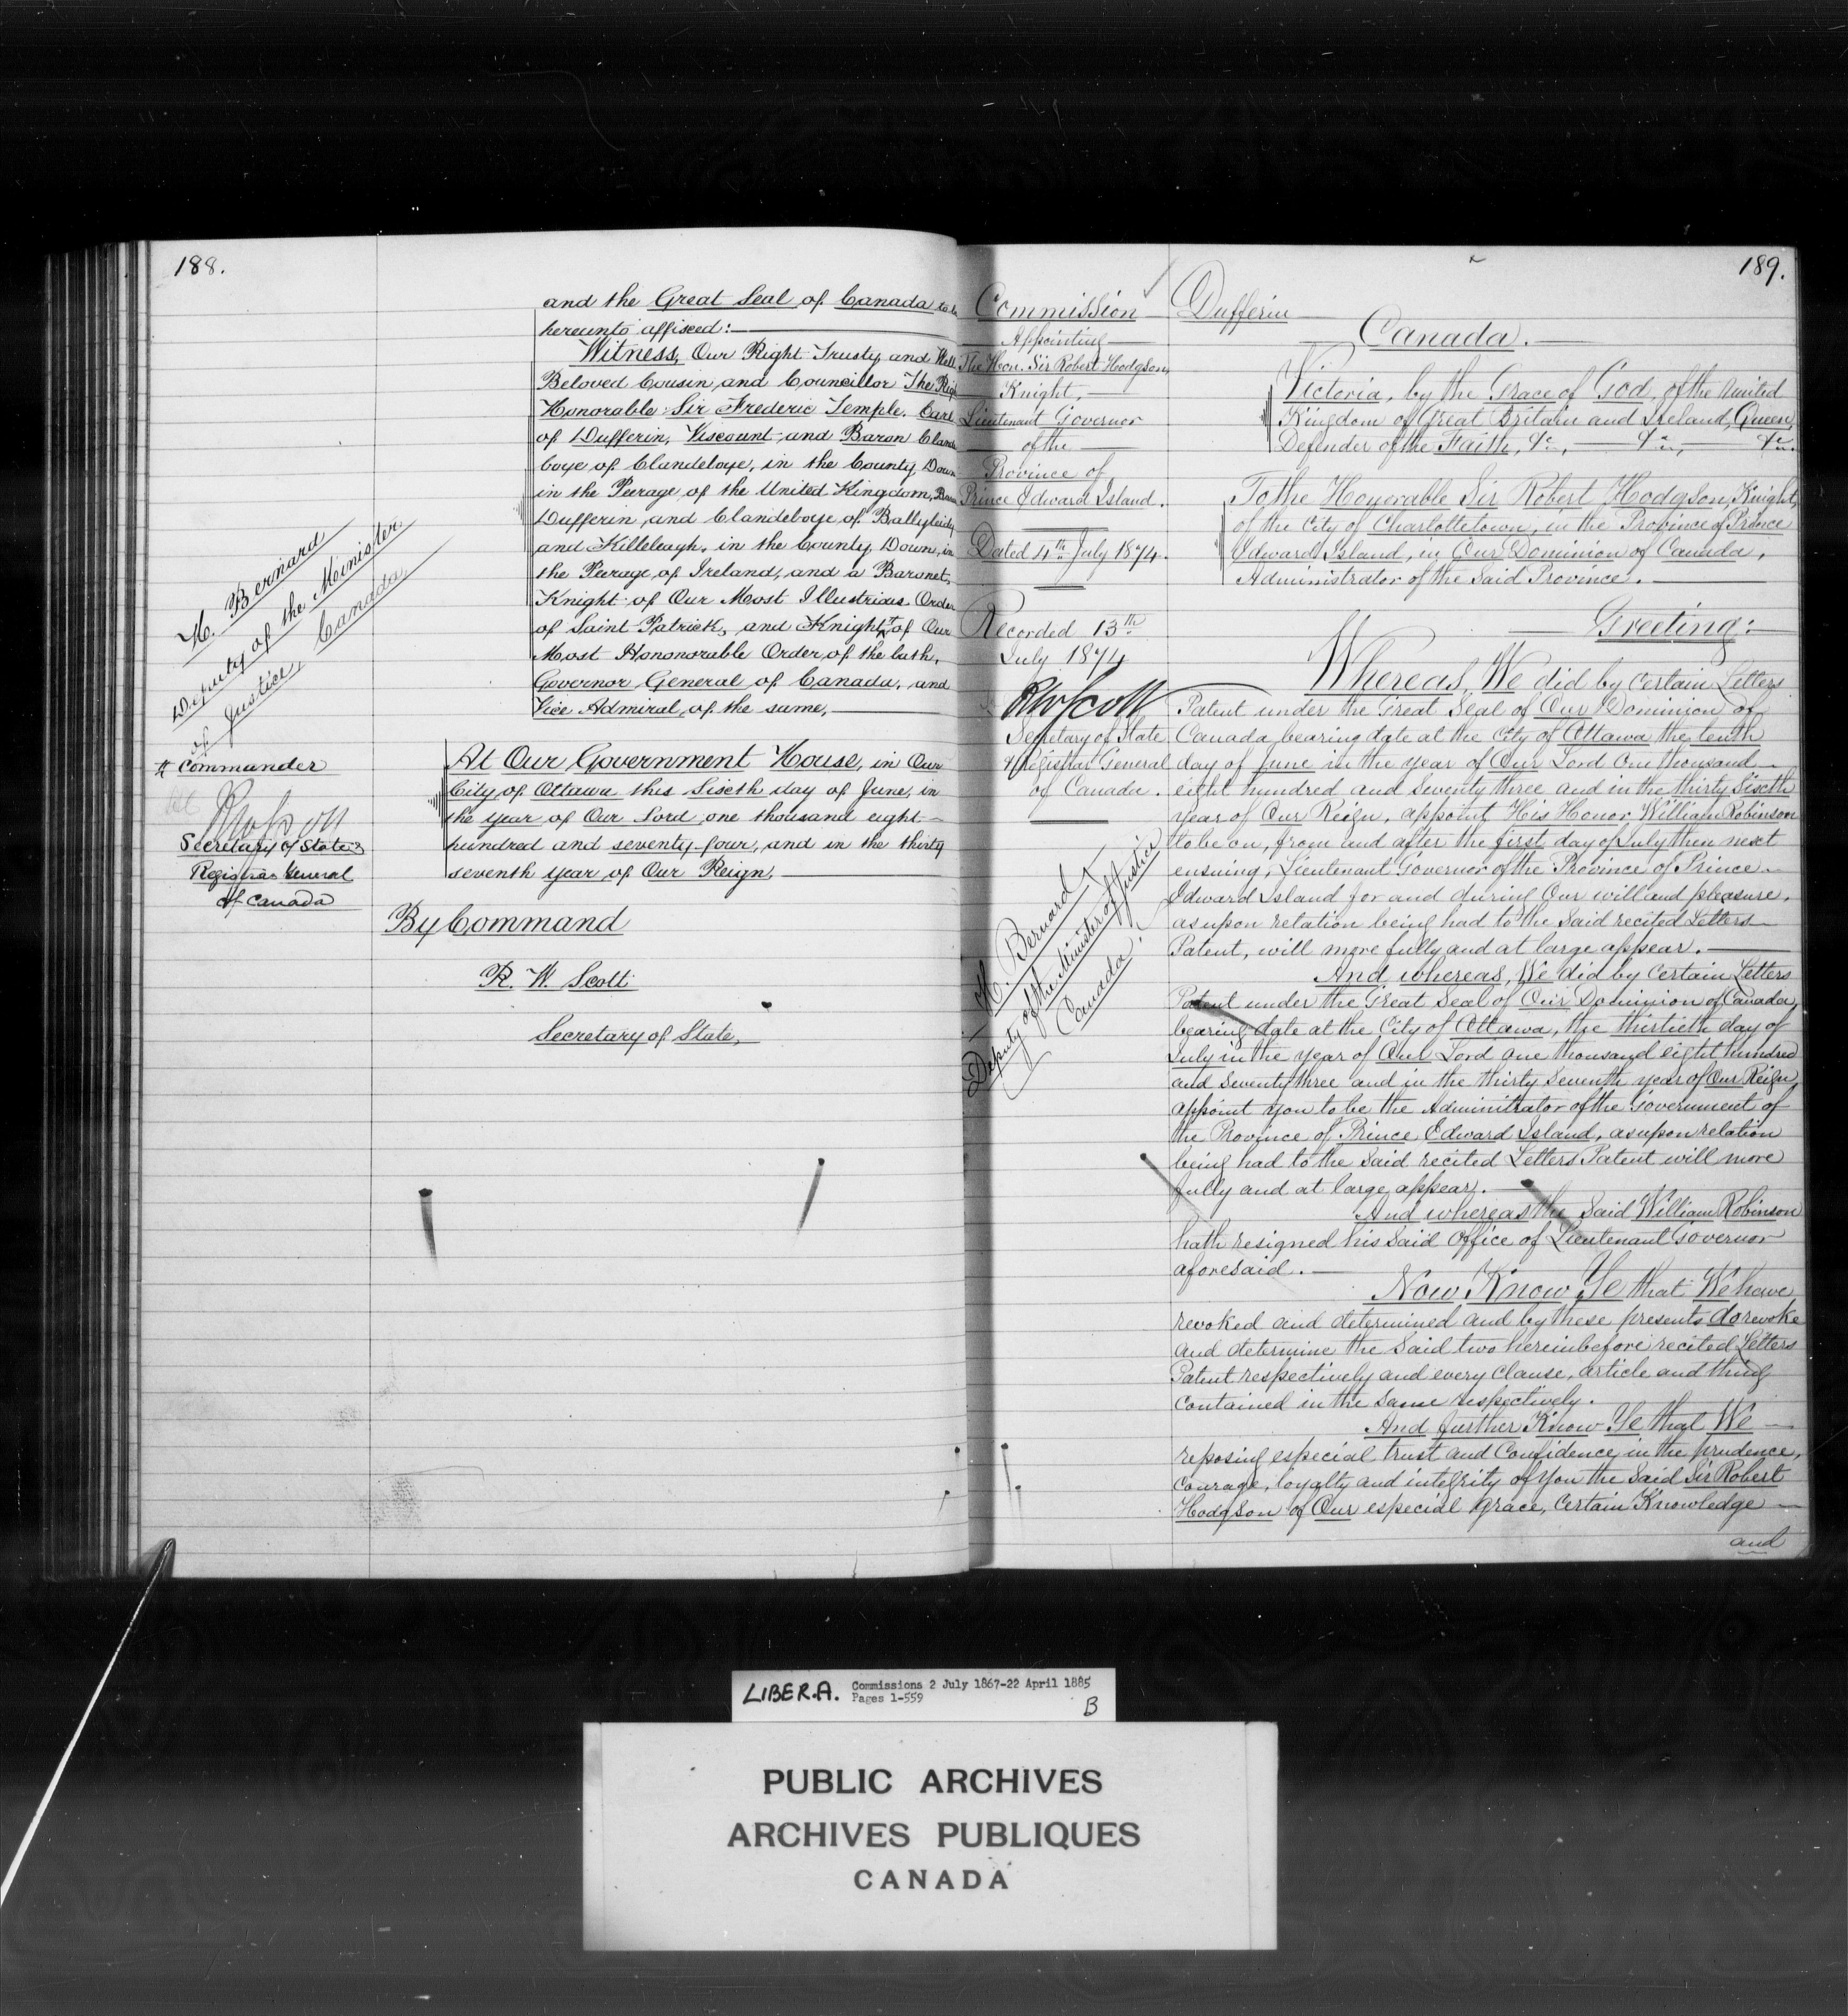 188.
and the Great Seal of Canada to be
hereunto affixed:
Witness, Our Right Trusty and Well
Beloved Cousin and Councillor The Right
Honorable Sir Frederic Temple. Earl
of Dufferin, Viscount and Baron Clande
boye of Clandeboye, in the County Down
in the Peerage of the United Kingdom, Baron
Dufferin and Clandeboye of Ballyleidy
and Killeleagh, in the County Down, in
the Peerage of Ireland, and a Baronet,
Knight of Our Most Illustrious Order
of Saint Patrick, and Knight of Our
Most Hononorable Order of the bath,
Governor General of Canada, and
Vice Admiral of the same,
At Our Government House, in Our
City of Ottawa this Sixth day of June, in
the year of Our Lord one thousand eight
hundred and seventy-four, and in the thirty
seventh year of Our Reign.
By Command
R. W. Scott
Secretary of State,
H. Bernard
Deputy of the Minister
of Justice, Canada
Commander
RWScott
Secretary of State &
Registrar General
of Canada
189.
Commission
Appointing
The Hon. Sir Robert Hodgson,
Knight,
Lieutenant Governor
of the
Province of
Prince Edward Island.
Dated 4th July 1874.
Recorded 13th
July 1874
RWScott
Secretary of State
& Registrar General
of Canada.
H. Bernard
Deputy of the Minister of Justice
Canada.
Dufferin
Canada.
Victoria, by the Grace of God, of the United
Kingdom of Great Britain and Ireland, Queen,
Defender of the Faith, &c, &c, &c.
To the Honorable Sir Robert Hodgson, Knight,
of the City of Charlottetown, in the Province of Prince
Edward Island, in Our Dominion of Canada,
Administrator of the Said Province.
Greeting:
Whereas, We did by certain Letters
Patent under the Great Seal of Our Dominion of
Canada bearing date at the City of Ottawa the tenth
day of June in the year of Our Lord One thousand
eight hundred and seventy three and in the thirty Sixth
year of Our Reign, appoint His Honor William Robinson
to be on, from and after the first day of July then next
ensuing, Lieutenant Governor of the Province of Prince
Edward Island for and during Our will and pleasure,
as upon relation being had to the said recited Letters
Patent, will more fully and at large appear.
And whereas, We did by certain Letters
Patent under the Great Seal of Our Dominion of Canada,
bearing date at the City of Ottawa, the thirtieth day of
July in the year of Our Lord one thousand eight hundred
and seventy three and in the thirty seventh year of Our Reign,
appoint you to be the Adminitrator of the Government of
the Province of Prince Edward Island, as upon relation
being had to the said recited Letters Patent will more
fully and at large appear.
And whereas the said William Robinson
hath resigned his said Office of Lieutenant Governor
aforesaid.
Now Know Ye that We have
revoked and determined and by these presents do revoke
and determine the said two hereinbefore recited Letters
Patent respectively and every clause, article and thing
contained in the same respectively.
And further Know Ye that We
reposing especial trust and Confidence in the prudence,
courage, loyalty and integrity of you the said Sir Robert
Hodgson of Our especial grace, certain Knowledge
and
LIBER.A. Commissions 2 July 1867-22 April 1885
Pages 1-559
B
PUBLIC ARCHIVES
ARCHIVES PUBLIQUES
CANADA